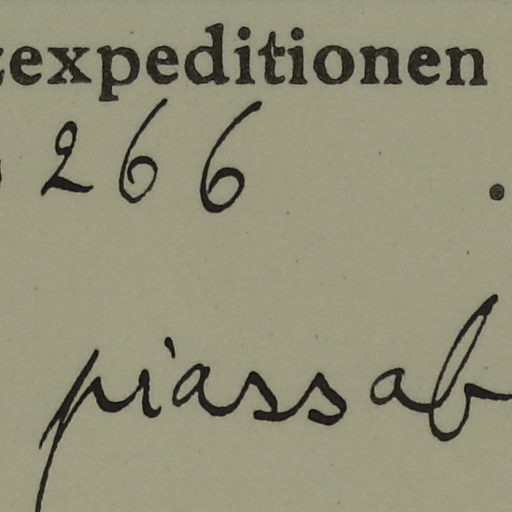 zexpeditionen
266 .
piassab